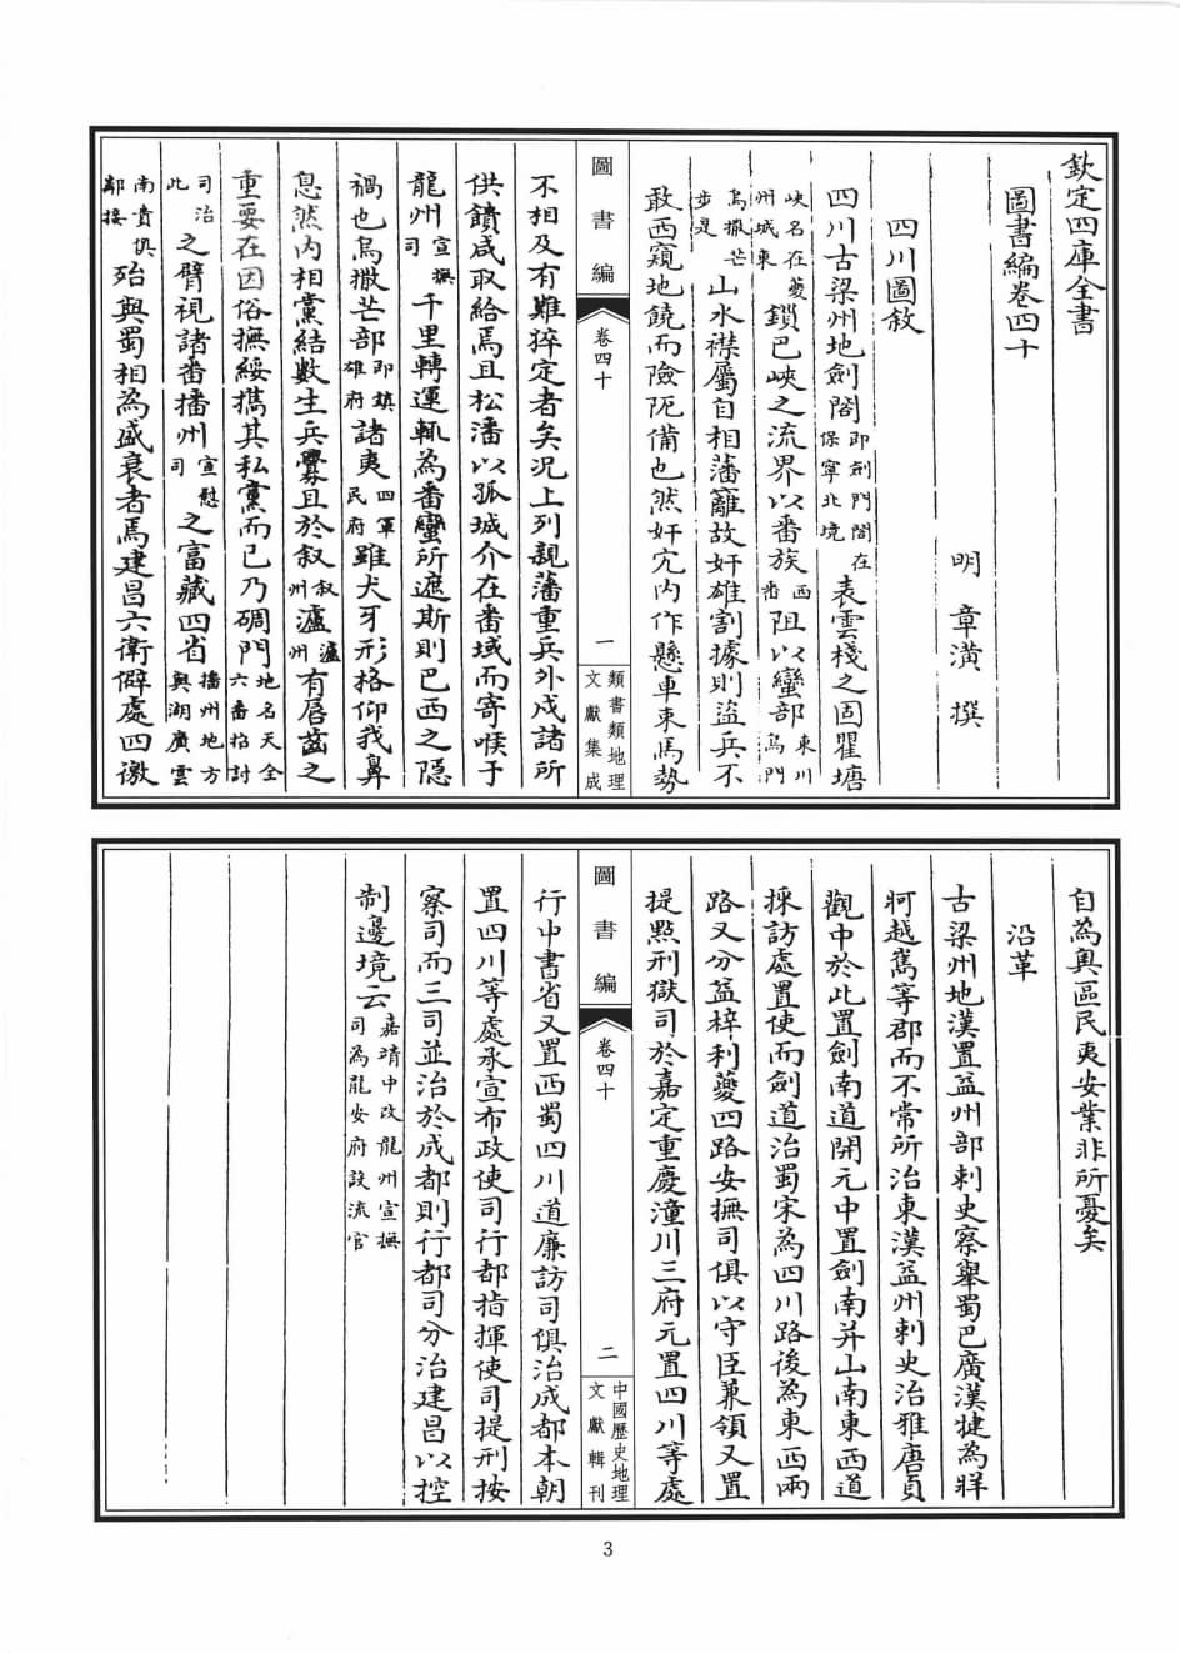 欽定四庫全書
圖書編卷四十
明 章潢 撰
四川圖敘
四川古梁州地劍閣即劍門關在保寧北境表雲棧之固瞿塘
峽名在夔州城東鎖巴峽之流界以番族西番阻以蠻部東川烏門
烏撒芒步是山水襟屬自相藩籬故奸雄割據則盜兵不
敢西窺地饒而險阨備也然奸宄內作懸車束馬勢
圖書編
卷四十
一
類書類地理
文獻集成
不相及有難猝定者矣况上列親藩重兵外戍諸所
供饋咸取給焉且松潘以孤城介在番域而寄喉于
龍州宣撫司千里轉運輒為番蠻所遮斯則巴西之隱
禍也烏撒芒部即鎮雄府諸夷四軍民府雖犬牙形格仰我鼻
息然內相黨結數生兵釁且於叙叙州瀘瀘州有唇齒之
重要在因俗撫綏攜其私黨而已乃碉門地名天全六番招討
司治此之臂視諸番播州宣慰司之富藏四省播州地方與湖廣雲
南貴俱鄰接殆與蜀相為盛衰者焉建昌六衛僻處四徼
自為奥區民夷安業非所憂矣
沿革
古梁州地漢置益州部刺史察舉蜀巴廣漢揵為牂
牁越嶲等郡而不常所治東漢益州刺史治雒唐貞
觀中於此置劍南道開元中置劍南并山南東西道
採訪處置使而劍道治蜀宋為四川路後為東西兩
路又分益梓利夔四路安撫司俱以守臣兼領又置
提點刑獄司於嘉定重慶潼川三府元置四川等處
圖書編
卷四十
二
中國歷史地理
文獻輯刊
行中書省又置西蜀四川道廉訪司俱治成都本朝
置四川等處承宣布政使司行都指揮使司提刑按
察司而三司並治於成都則行都司分治建昌以控
制邊境云嘉靖中改龍州宣撫司為龍安府設流官
3